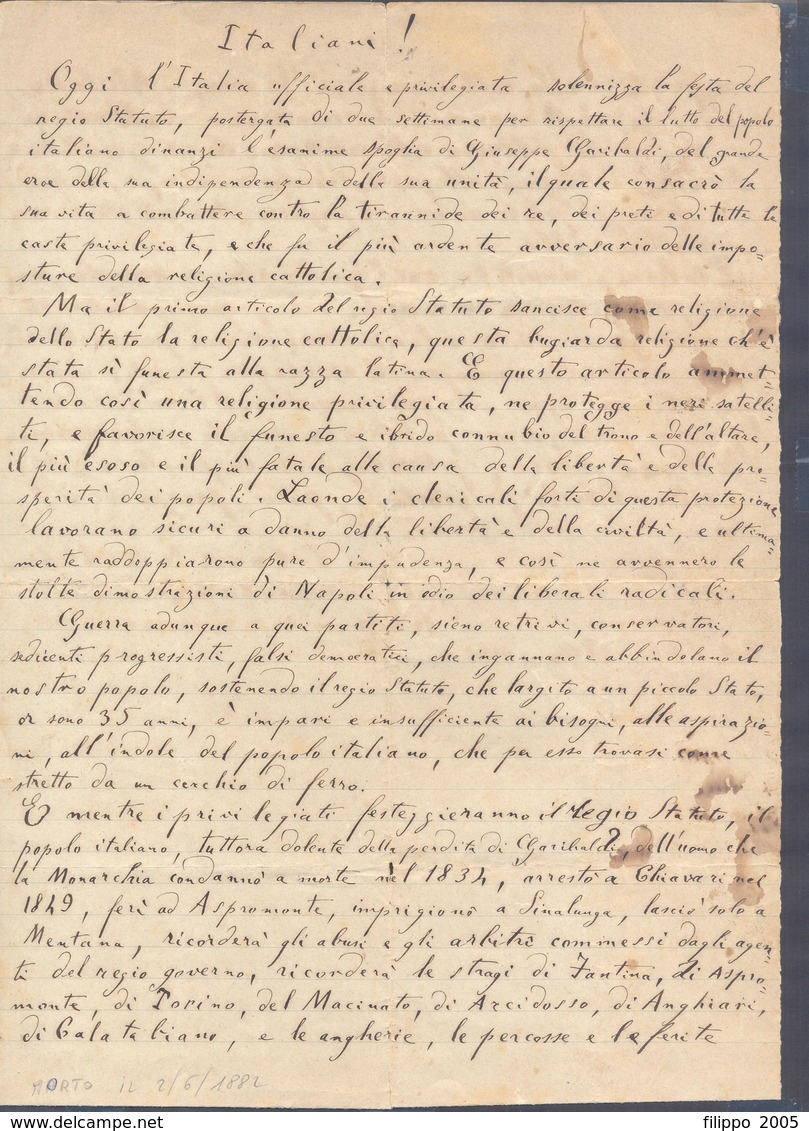 Italiani!
Oggi l'Italia ufficiale e privilegiata solennizza la festa del
regio Statuto, postergata di due settimane per rispettare il lutto del popolo
italiano dinanzi l'esanime spoglia di Giuseppe Garibaldi, del grande
eroe della sua indipendenza e della sua unità, il quale consacrò la
sua vita a combattere contro la tirannide dei re, dei preti e di tutte le
caste privilegiate, e che fu il più ardente avversario delle impo=
sture della religione cattolica.
Ma il primo articolo del regio Statuto sancisce come religione
dello Stato la religione cattolica, questa bugiarda religione ch'è
stata sì funesta alla razza latina. E questo articolo ammet=
tendo così una religione privilegiata, ne protegge i neri satelli=
ti, e favorisce il funesto e ibrido connubio del trono e dell'altare,
il più esoso e il più fatale alla causa della libertà e della pro=
sperità dei popoli. Laonde i clericali forti di questa protezione
lavorano sicuri a danno della libertà e della civiltà, e ultima=
mente raddoppiarono pure d'impudenza, e così ne avvennero le
stolte dimostrazioni di Napoli in odio dei liberali radicali.
Guerra adunque a quei partiti, sieno retrivi, conservatori,
sedicenti progressisti, falsi democratici, che ingannano e abbindolano il
nostro popolo, sostenendo il regio Statuto, che largito a un piccolo Stato,
or sono 35 anni, è impari e insufficiente ai bisogni, alle aspirazio=
ni, all'indole del popolo italiano, che per esso trovasi come
stretto da un cerchio di ferro.
E mentre i privilegiati festeggieranno il regio Statuto, il
popolo italiano, tuttora dolente della perdita di Garibaldi, dell'uomo che
la Monarchia condannò a morte nel 1834, arrestò a Chiavari nel
1849, ferì ad Aspromonte, imprigionò a Sinalunga, lasciò solo a
Mentana, ricorderà gli abusi e gli arbitri commessi dagli agen=
ti del regio governo, ricorderà le stragi di Fantina, di Aspro=
monte, di Torino, del Macinato, di Arcidosso, di Anghiari,
di Calatabiano, e le angherie, le percosse e le ferite
MORTO IL 2/6/1882
filippo 2005